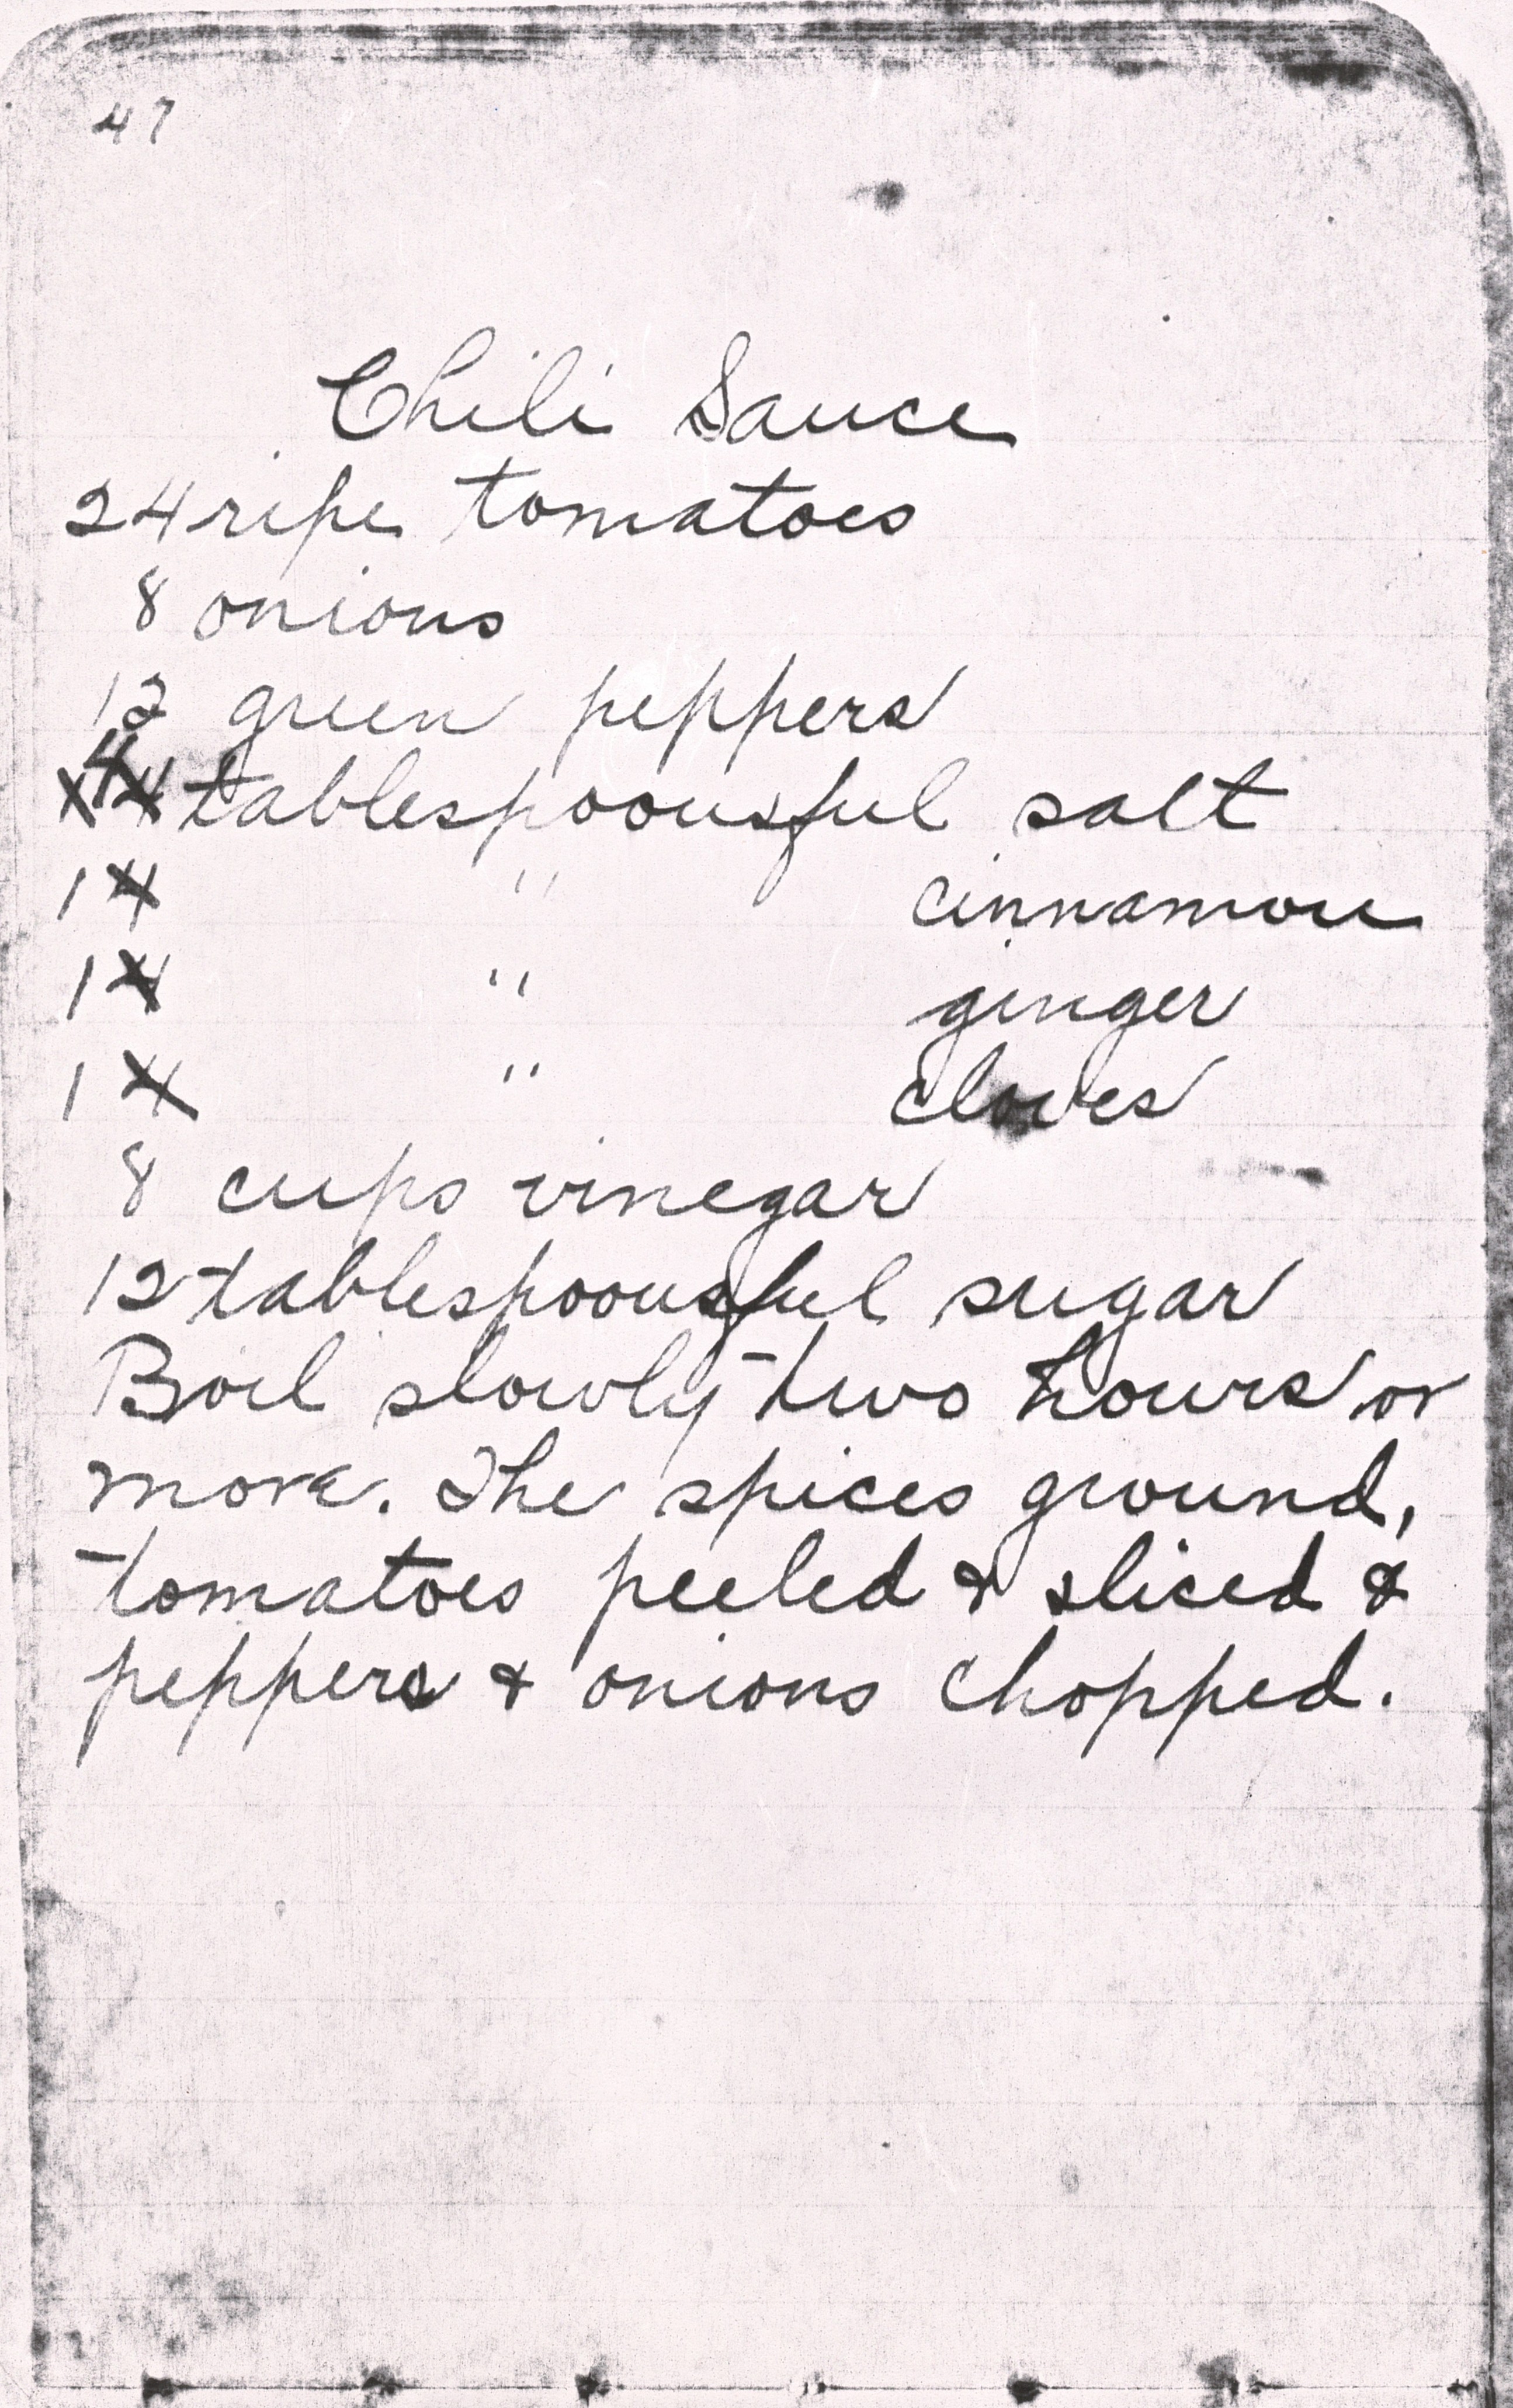 47
Chili Sauce
24 ripe tomatoes
8 onions
12 green peppers
4 tablespoonsful salt
1 " cinnamon
1 " ginger
1 " cloves
8 cups vinegar
12 tablespoonsful sugar
Boil slowly two hours or
more. The spices ground,
tomatoes peeled & sliced &
peppers & onions chopped.